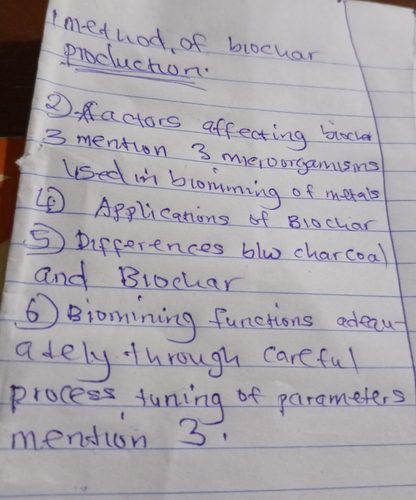 1 method, of biochar
production.
2) Factors affecting biochar
3 mention 3 microorganisms
Used in biomining of metals
4) Applications of Biochar
5) Differences b/w charcoal
and Biochar
6) Biomining functions adequ-
ately through careful
process tuning of parameters
mention 3.